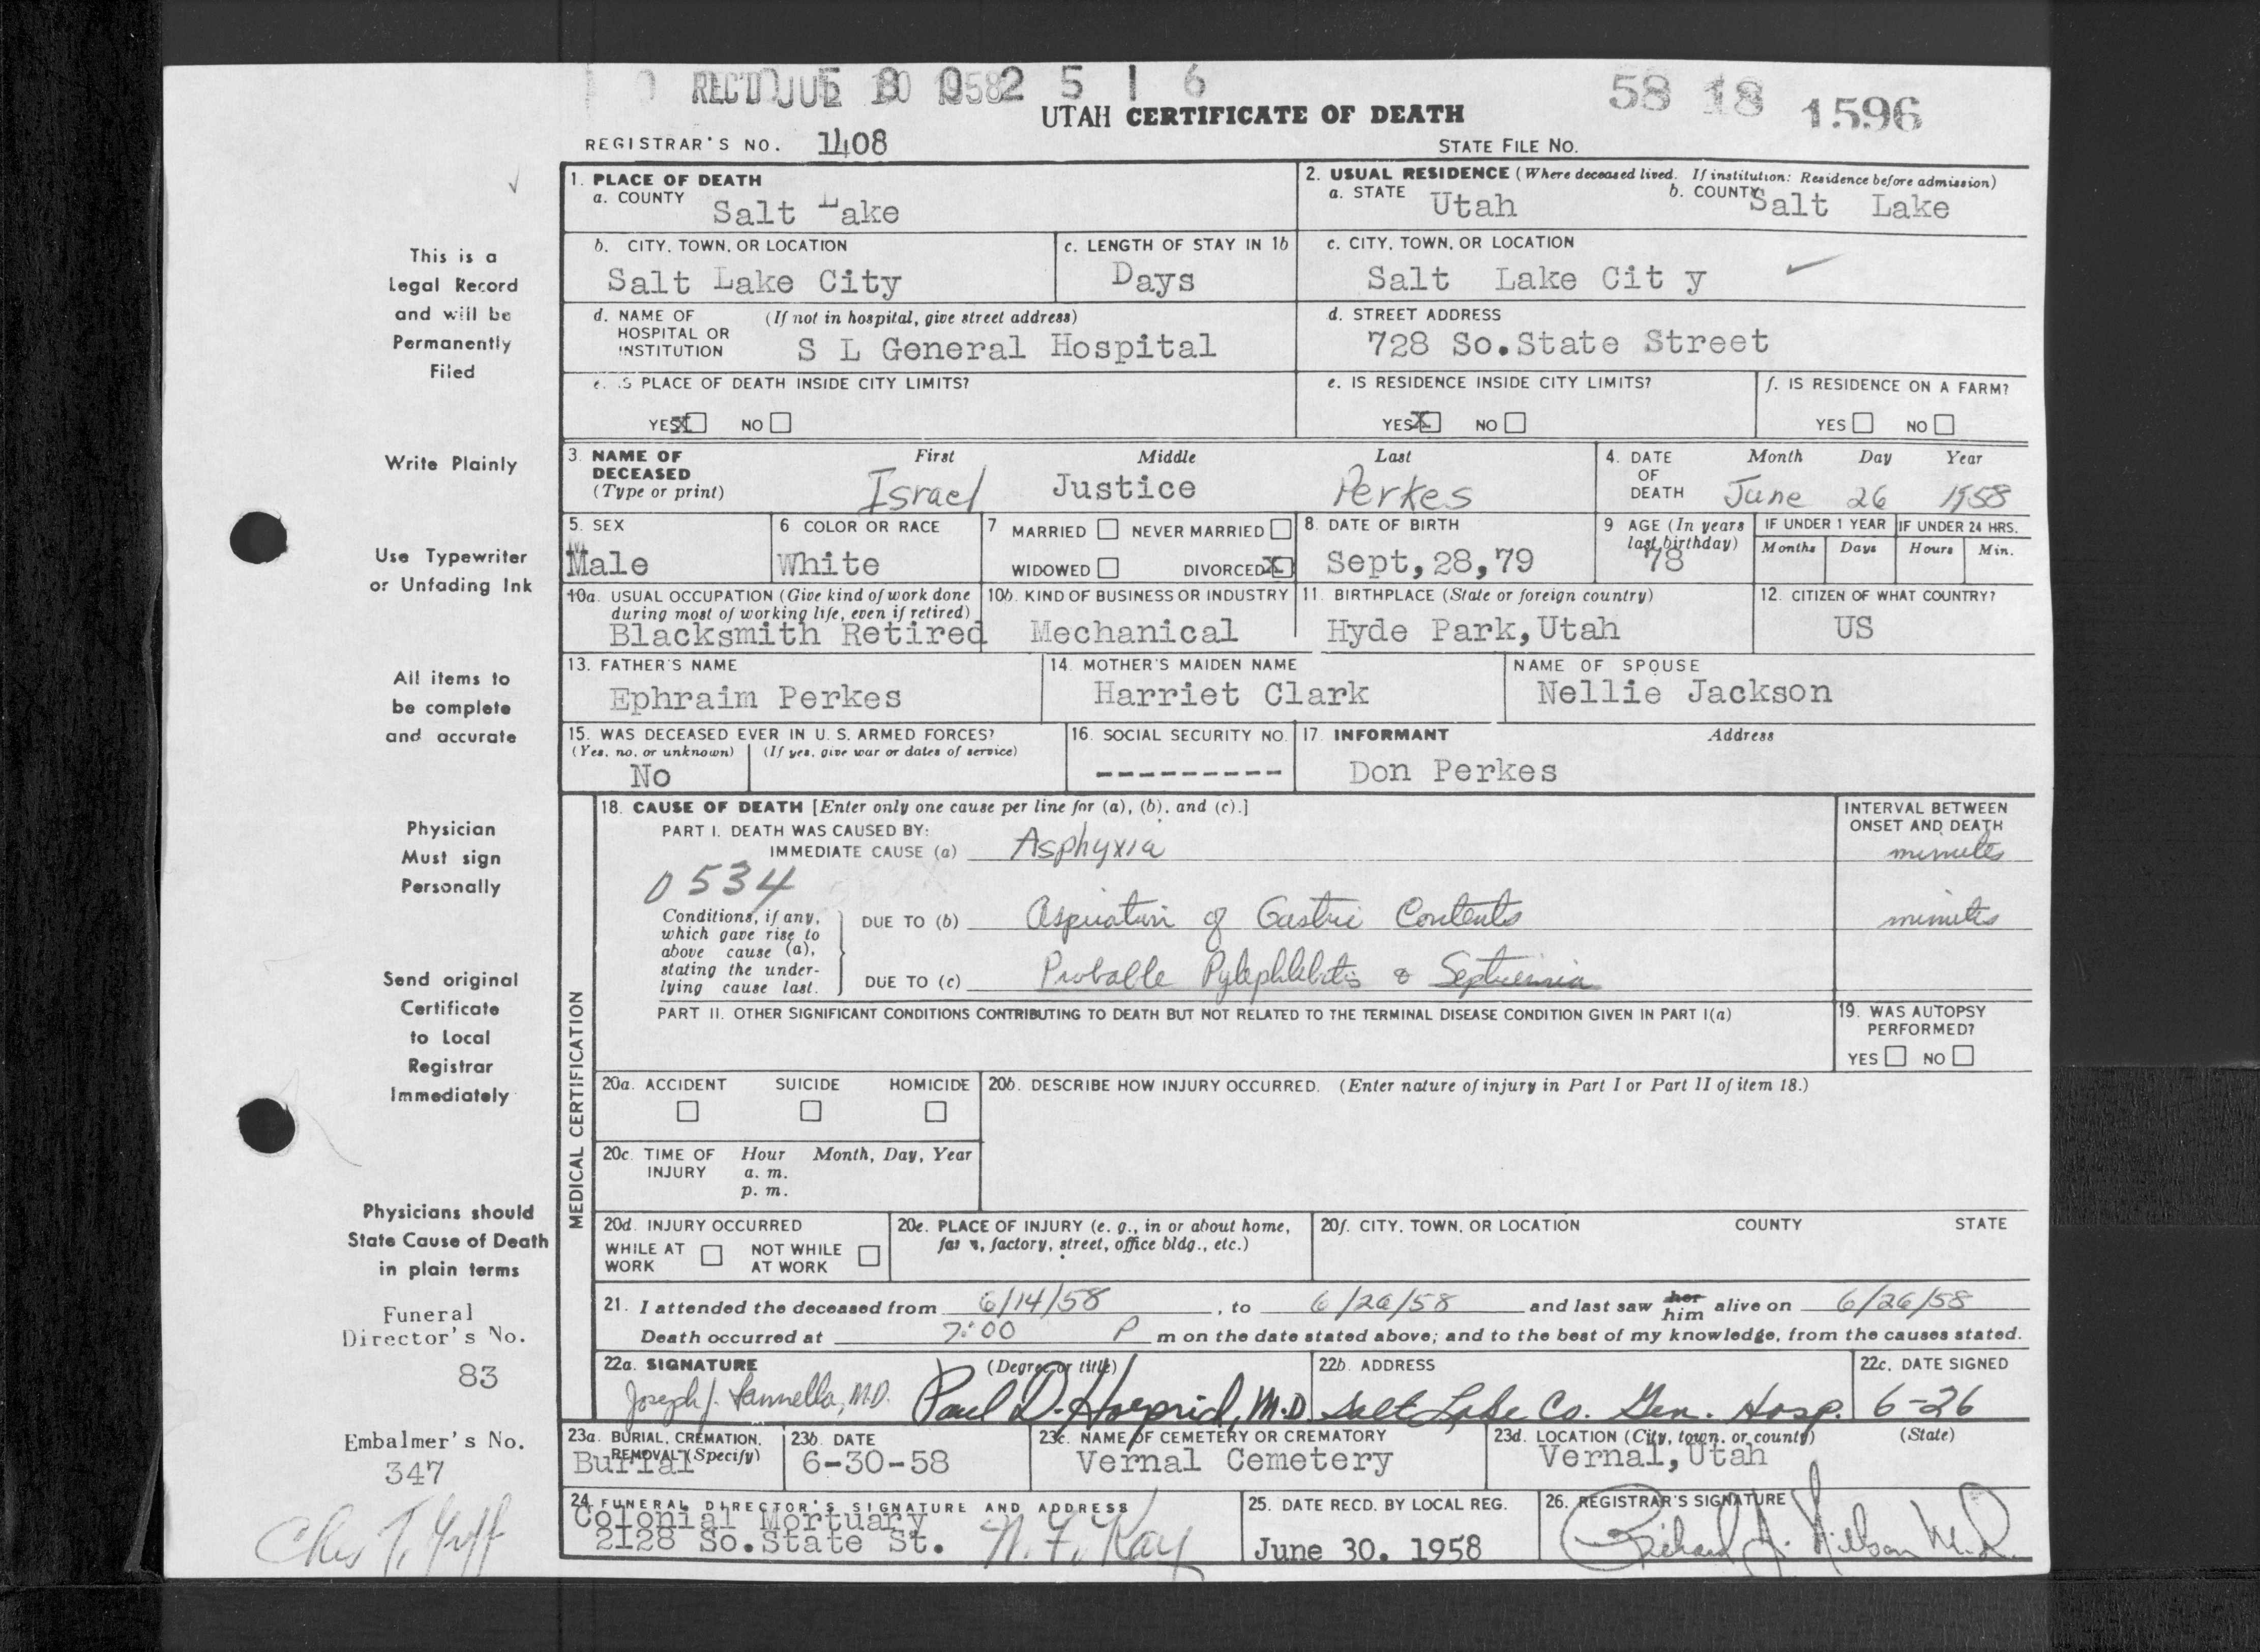 REC'D JUL 10 1958 2 5 1 6
58 18 1596
UTAH CERTIFICATE OF DEATH
REGISTRAR'S NO. 1408
STATE FILE No.
1. PLACE OF DEATH
a. COUNTY Salt Lake
2. USUAL RESIDENCE (Where deceased lived. If institution: Residence before admission)
a. STATE Utah b. COUNTY Salt Lake
b. CITY, TOWN, OR LOCATION
Salt Lake City
c. LENGTH OF STAY IN 1b
Days
c. CITY, TOWN, OR LOCATION
Salt Lake Cit y
d. NAME OF HOSPITAL OR INSTITUTION (If not in hospital, give street address)
S L General Hospital
d. STREET ADDRESS
728 So.State Street
e. IS PLACE OF DEATH INSIDE CITY LIMITS?
YES X NO
e. IS RESIDENCE INSIDE CITY LIMITS?
YES X NO
f. IS RESIDENCE ON A FARM?
YES NO
3. NAME OF DECEASED (Type or print)
First Middle Last
Israel Justice Perkes
4. DATE OF DEATH Month Day Year
June 26 1958
5. SEX
Male
6 COLOR OR RACE
White
7 MARRIED NEVER MARRIED
WIDOWED DIVORCED X
8. DATE OF BIRTH
Sept,28,79
9 AGE (In years last birthday)
78
IF UNDER 1 YEAR
Months Days
IF UNDER 24 HRS.
Hours Min.
10a. USUAL OCCUPATION (Give kind of work done during most of working life, even if retired)
Blacksmith Retired
10b. KIND OF BUSINESS OR INDUSTRY
Mechanical
11. BIRTHPLACE (State or foreign country)
Hyde Park,Utah
12. CITIZEN OF WHAT COUNTRY?
US
13. FATHER'S NAME
Ephraim Perkes
14. MOTHER'S MAIDEN NAME
Harriet Clark
NAME OF SPOUSE
Nellie Jackson
15. WAS DECEASED EVER IN U. S. ARMED FORCES?
(Yes, no, or unknown) (If yes, give war or dates of service)
No
16. SOCIAL SECURITY NO.
---------
17. INFORMANT Address
Don Perkes
MEDICAL CERTIFICATION
18. CAUSE OF DEATH [Enter only one cause per line for (a), (b), and (c).]
INTERVAL BETWEEN ONSET AND DEATH
PART I. DEATH WAS CAUSED BY:
IMMEDIATE CAUSE (a) Asphyxia minutes
0534
Conditions, if any, which gave rise to above cause (a), stating the underlying cause last.
DUE TO (b) Aspiration of Gastric Contents minutes
DUE TO (c) Probable Pylephlebitis & Septicemia
PART II. OTHER SIGNIFICANT CONDITIONS CONTRIBUTING TO DEATH BUT NOT RELATED TO THE TERMINAL DISEASE CONDITION GIVEN IN PART I(a)
19. WAS AUTOPSY PERFORMED?
YES NO
20a. ACCIDENT SUICIDE HOMICIDE
20b. DESCRIBE HOW INJURY OCCURRED. (Enter nature of injury in Part I or Part II of item 18.)
20c. TIME OF INJURY Hour Month, Day, Year
a. m.
p. m.
20d. INJURY OCCURRED
WHILE AT WORK NOT WHILE AT WORK
20e. PLACE OF INJURY (e. g., in or about home, farm, factory, street, office bldg., etc.)
20f. CITY, TOWN, OR LOCATION COUNTY STATE
21. I attended the deceased from 6/14/58, to 6/26/58 and last saw her him alive on 6/26/58
Death occurred at 7:00 P m on the date stated above; and to the best of my knowledge, from the causes stated.
22a. SIGNATURE (Degree or title)
Joseph J. M.D. Paul D. M.D
22b. ADDRESS
Salt Lake Co. Gen. Hosp.
22c. DATE SIGNED
6-26
23a. BURIAL, CREMATION, REMOVAL (Specify)
Burial
23b. DATE
6-30-58
23c. NAME OF CEMETERY OR CREMATORY
Vernal Cemetery
23d. LOCATION (City, town, or county) (State)
Vernal,Utah
24 FUNERAL DIRECTOR'S SIGNATURE AND ADDRESS
Colonial Mortuary
2128 So.State St. N. F. Kay
25. DATE RECD. BY LOCAL REG.
June 30. 1958
26. REGISTRAR'S SIGNATURE
Richard M.D.
This is a
Legal Record
and will be
Permanently
Filed
Write Plainly
Use Typewriter
or Unfading Ink
All items to
be complete
and accurate
Physician
Must sign
Personally
Send original
Certificate
to Local
Registrar
Immediately
Physicians should
State Cause of Death
in plain terms
Funeral
Director's No.
83
Embalmer's No.
347